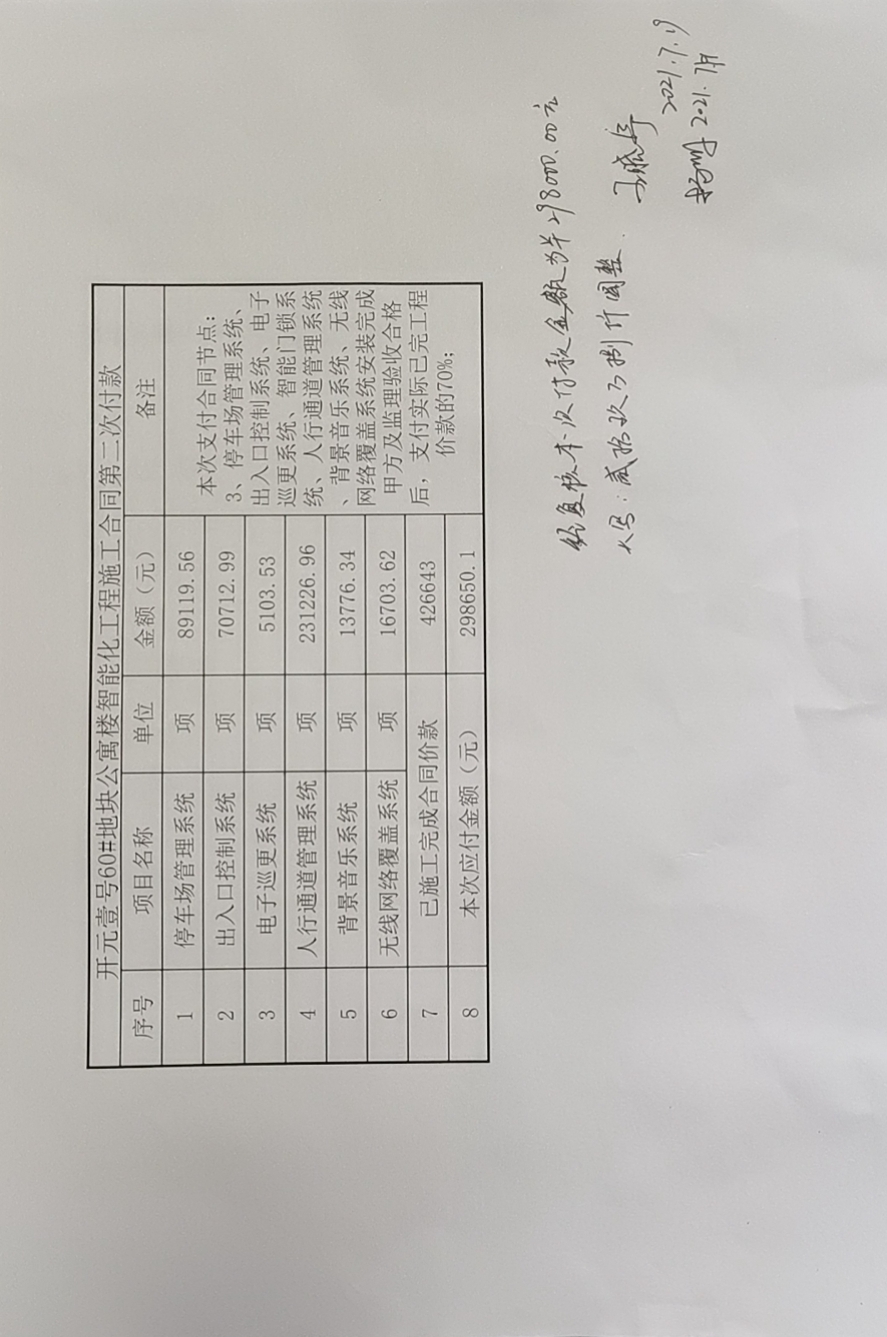 开元壹号60#地块公寓楼智能化工程施工合同第二次付款
序号 项目名称 单位 金额（元） 备注
1 停车场管理系统 项 89119.56
2 出入口控制系统 项 70712.99
3 电子巡更系统 项 5103.53
4 人行通道管理系统 项 231226.96
5 背景音乐系统 项 13776.34
6 无线网络覆盖系统 项 16703.62
7 已施工完成合同价款 426643
8 本次应付金额（元） 298650.1
本次支付合同节点：
3、停车场管理系统、
出入口控制系统、电子
巡更系统、智能门锁系
统、人行通道管理系统
、背景音乐系统、无线
网络覆盖系统安装完成
甲方及监理验收合格
后，支付实际已完工程
价款的70%；
经复核本次付款金额为¥298000.00元
大写：贰拾玖万捌仟圆整.
2021.7.19
2021.7月